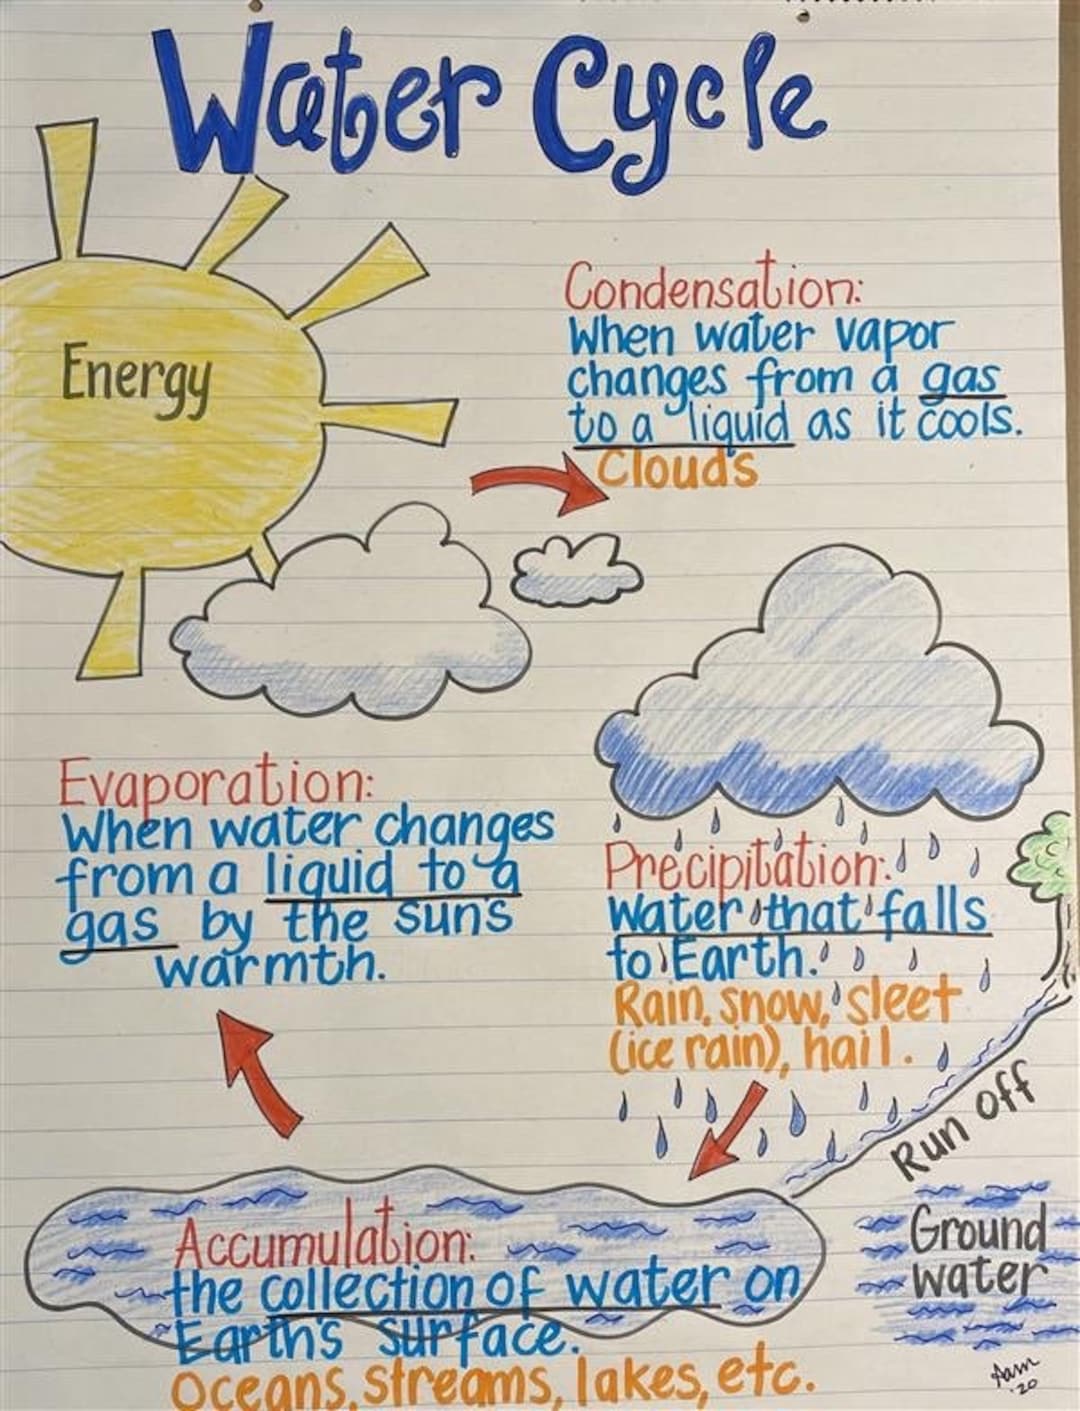 Water Cycle
Energy
Condensation:
When water vapor
changes from a gas
to a liquid as it cools.
Clouds
Evaporation:
When water changes
from a liquid to a
gas by the sun's
warmth.
Precipitation:
Water that falls
to Earth.
Rain, snow, sleet
(ice rain), hail.
Run off
Accumulation:
the collection of water on
Earth's surface.
Oceans, streams, lakes, etc.
Ground
water
Aam
'20